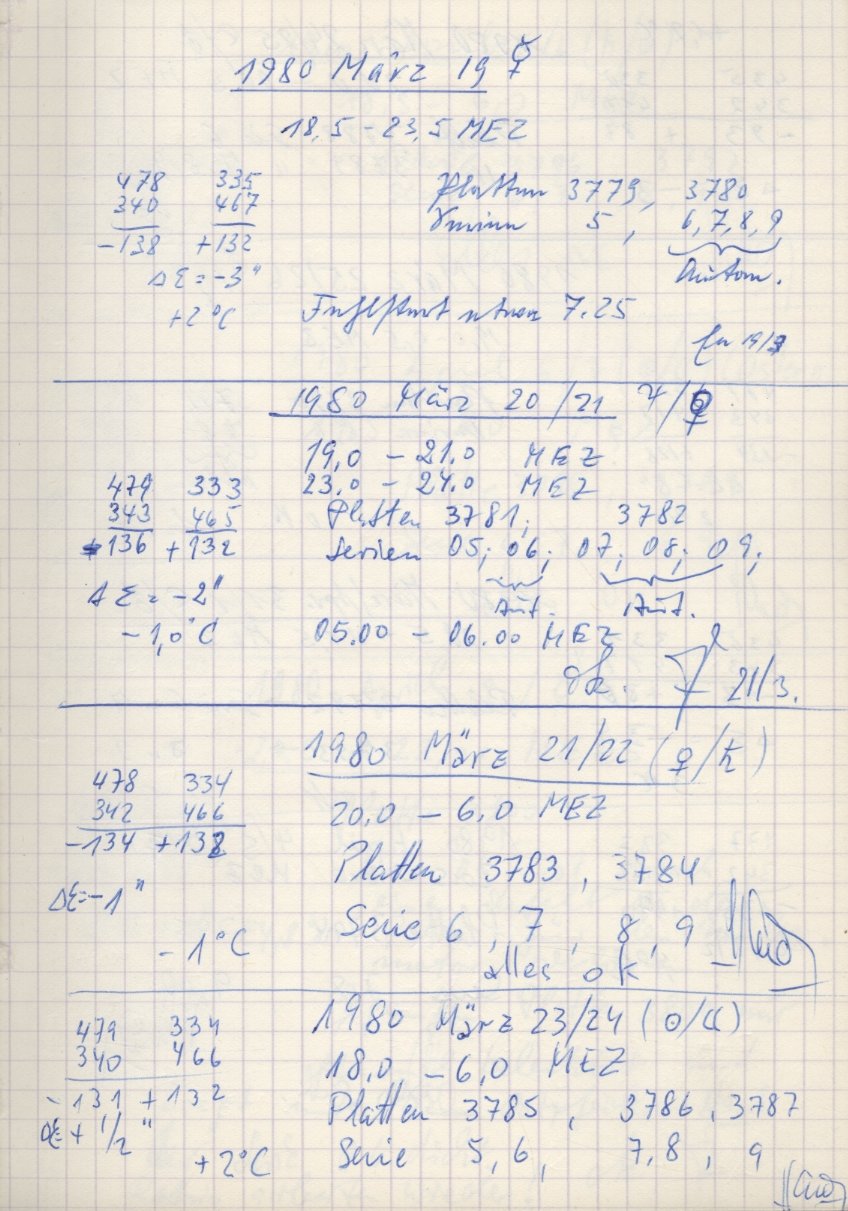 1980 März 19 ☿
18,5 – 23,5 MEZ
478 335 Platten 3779, 3780
340 467 Serien 5, 6,7,8,9
-138 +132
Δε = -3" Autom.
+2°C 7.25
19/3
1980 März 20/21 ♃/♀
19,0 – 21.0 MEZ
479 333 23.0 – 24.0 MEZ
343 465 Platten 3781, 3782
136 +132 Serien 05; 06; 07; 08; 09;
Δε = -2" Aut. Aut.
-1,0°C 05.00 – 06.00 MEZ
ok. 21/3.
1980 März 21/22 (♀/♄)
478 334
342 466 20,0 – 6,0 MEZ
-134 +132
Platten 3783, 3784
Δε=-1"
Serie 6, 7, 8, 9
-1°C alles ok
479 334 1980 März 23/24 (☉/☾)
340 466 18,0 – 6,0 MEZ
-131 +132 Platten 3785, 3786, 3787
Δε + 1/2"
+2°C Serie 5,6, 7,8, 9